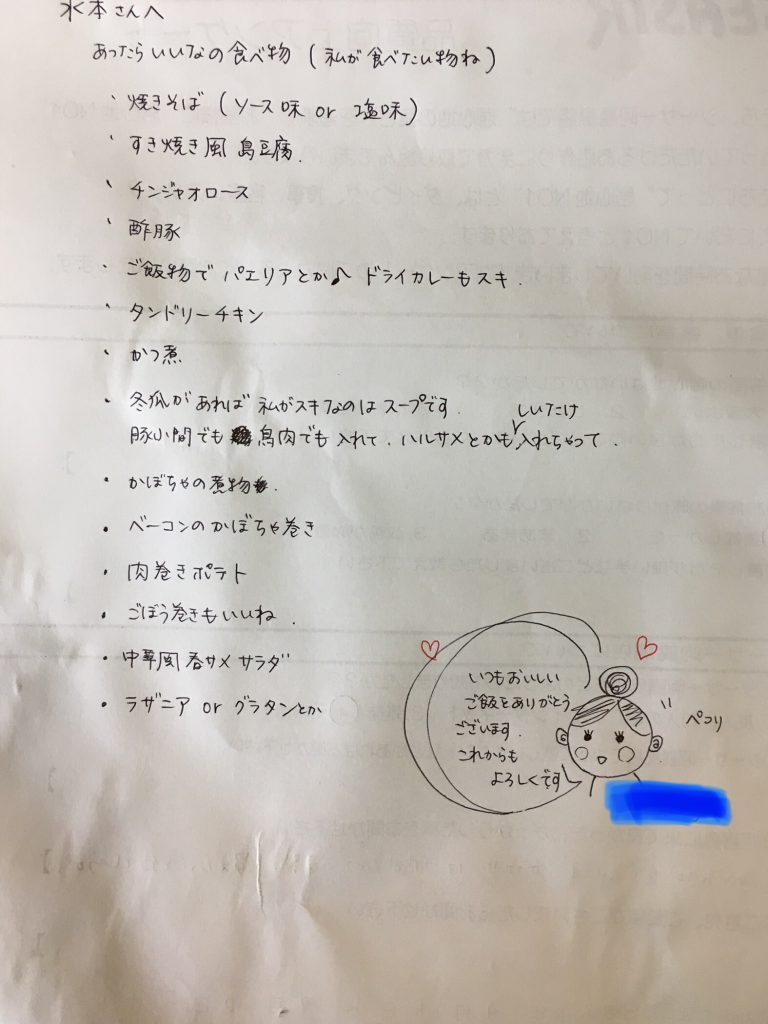 水本さんへ
あったらいいなの食べ物 (私が食べたい物ね)
・焼きそば (ソース味 or 塩味)
・すき焼き風 島豆腐.
・チンジャオロース
・酢豚
・ご飯物で パエリアとか♪ ドライカレーもスキ.
・タンドリーチキン
・かつ煮
・冬瓜があれば 私がスキなのは スープです.
しいたけ
豚小間でも 鳥肉でも 入れて. ハルサメとかも 入れちゃって.
・かぼちゃの煮物.
・ベーコンのかぼちゃ巻き
・肉巻きポテト
・ごぼう巻きもいいね.
・中華風春サメ サラダ
・ラザニア or グラタンとか
いつもおいしい
ご飯をありがとう
ございます.
これからも
よろしくです
ペコリ